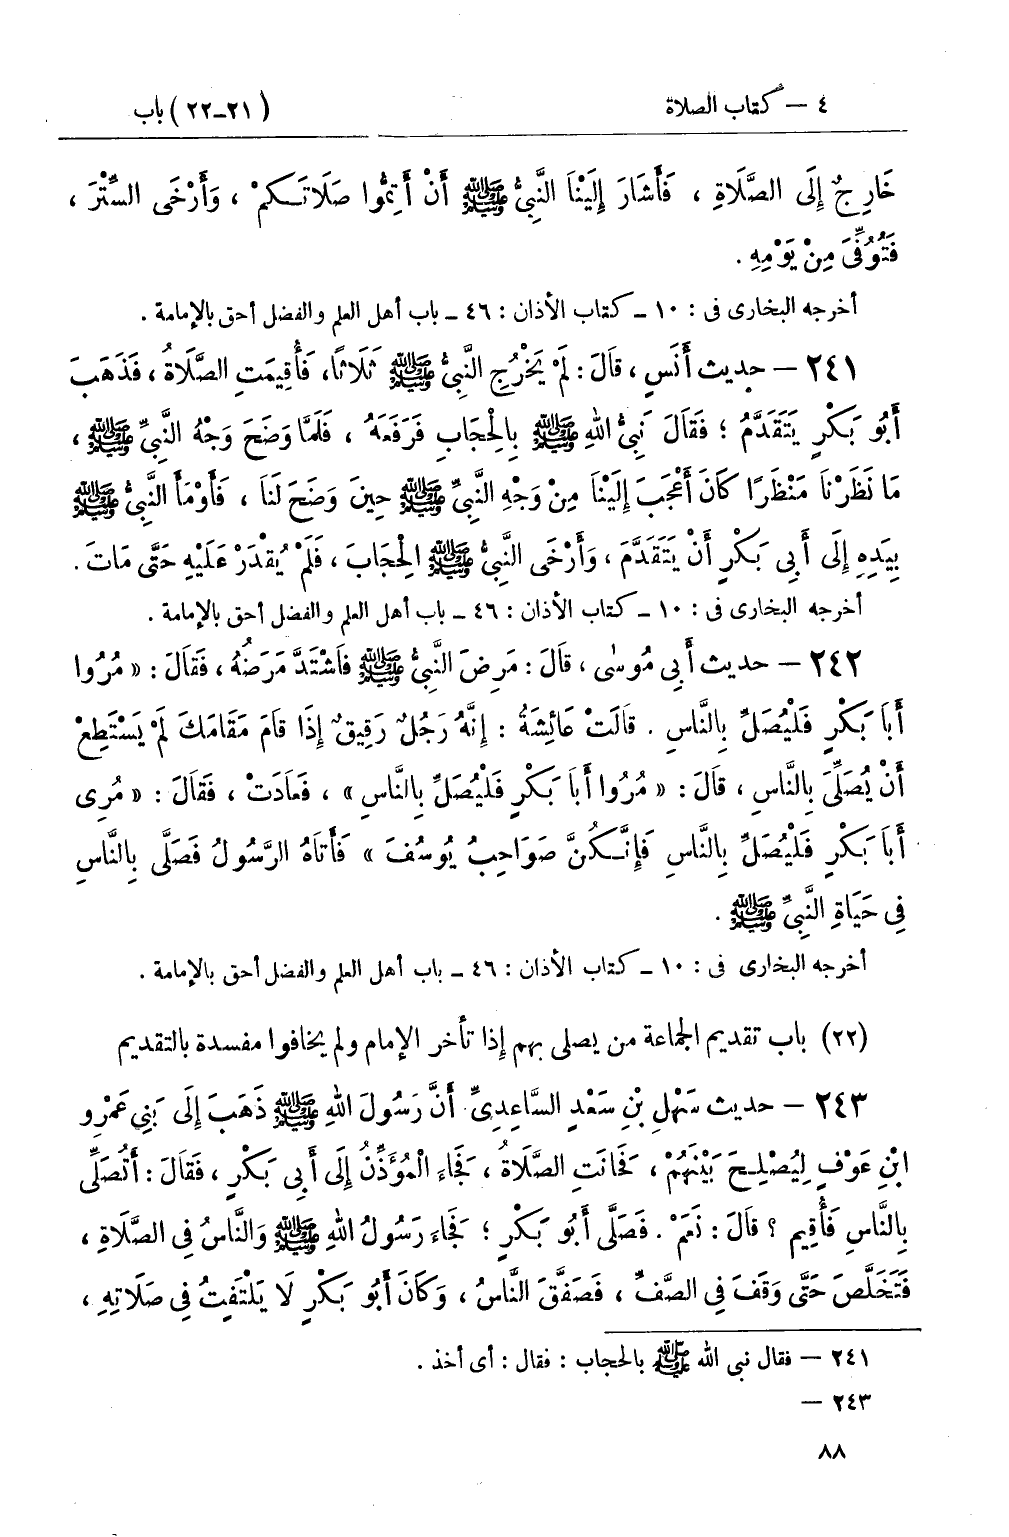 ٤ — كتاب الصلاة (٢١-٢٢) باب
خَارِجٌ إِلَى الصَّلَاةِ ، فَأَشَارَ إِلَيْنَا النَّبِيُّ ﷺ أَنْ أَتِمُّوا صَلَاتَكمْ ، وَأَرْخَى السِّتْرَ ،
فَتُوُفِّىَ مِنْ يَوْمِهِ .
أخرجه البخارى فى : ١٠ ـ كتاب الأذان : ٤٦ ـ باب أهل العلم والفضل أحق بالإمامة .
٢٤١ — حديث أَنَسٍ ، قَالَ : لَمْ يَخْرُجِ النَّبِيُّ ﷺ ثَلَاثًا، فَأُقِيمَتِ الصَّلَاةُ ، فَذَهَبَ
أَبُو بَكْرٍ يَتَقَدَّمُ ؛ فَقَالَ نَبِيُّ اللهِ ﷺ بِالْحِجَابِ فَرَفَعَهُ ، فَلَمَّا وَضَحَ وَجْهُ النَّبِيِّ ﷺ ،
مَا نَظَرْنَا مَنْظَرًا كَانَ أَعْجَبَ إِلَيْنَا مِنْ وَجْهِ النَّبِيِّ ﷺ حِينَ وَضَحَ لَنَا ، فَأَوْمَأَ النَّبِيُّ ﷺ
بِيَدِهِ إِلَى أَبِى بَكْرٍ أَنْ يَتَقَدَّمَ ، وَأَرْخَى النَّبِيُّ ﷺ الْحِجَابَ ، فَلَمْ يُقْدَرْ عَلَيْهِ حَتَّى مَاتَ .
أخرجه البخارى فى : ١٠ ـ كتاب الأذان : ٤٦ ـ باب أهل العلم والفضل أحق بالإمامة .
٢٤٢ — حديث أَبِى مُوسَى ، قَالَ : مَرِضَ النَّبِيُّ ﷺ فَاشْتَدَّ مَرَضُهُ ، فَقَالَ : « مُرُوا
أَبَا بَكْرٍ فَلْيُصَلِّ بِالنَّاسِ . قَالَتْ عَائِشَةُ : إِنَّهُ رَجُلٌ رَقِيقٌ إِذَا قَامَ مَقَامَكَ لَمْ يَسْتَطِعْ
أَنْ يُصَلِّىَ بِالنَّاسِ ، قَالَ : « مُرُوا أَبَا بَكْرٍ فَلْيُصَلِّ بِالنَّاسِ » ، فَعَادَتْ ، فَقَالَ : « مُرِى
أَبَا بَكْرٍ فَلْيُصَلِّ بِالنَّاسِ فَإِنَّكُنَّ صَوَاحِبُ يُوسُفَ » فَأَتَاهُ الرَّسُولُ فَصَلَّى بِالنَّاسِ
فِى حَيَاةِ النَّبِيِّ ﷺ .
أخرجه البخارى فى : ١٠ ـ كتاب الأذان : ٤٦ ـ باب أهل العلم والفضل أحق بالإمامة .
(٢٢) باب تقديم الجماعة من يصلى بهم إذا تأخر الإمام ولم يخافوا مفسدة بالتقديم
٢٤٣ — حديث سَهْلِ بْنِ سَعْدٍ السَّاعِدِىِّ أَنَّ رَسُولَ اللهِ ﷺ ذَهَبَ إِلَى بَنِي عَمْرِو
ابْنِ عَوْفٍ لِيُصْلِحَ بَيْنَهُمْ ، فَحَانَتِ الصَّلَاةُ ، فَجَاءَ الْمُؤَذِّنُ إِلَى أَبِى بَكْرٍ ، فَقَالَ : أَتُصَلِّى
بِالنَّاسِ فَأُقِيمَ ؟ قَالَ : نَعَمْ . فَصَلَّى أَبُو بَكْرٍ ؛ فَجَاءَ رَسُولُ اللهِ ﷺ وَالنَّاسُ فِى الصَّلَاةِ ،
فَتَخَلَّصَ حَتَّى وَقَفَ فِى الصَّفِّ ، فَصَفَّقَ النَّاسُ ، وَكَانَ أَبُو بَكْرٍ لَا يَلْتَفِتُ فِى صَلَاتِهِ ،
٢٤١ — فقال نبى الله ﷺ بالحجاب : فقال : أى أخذ .
٢٤٣ —
٨٨